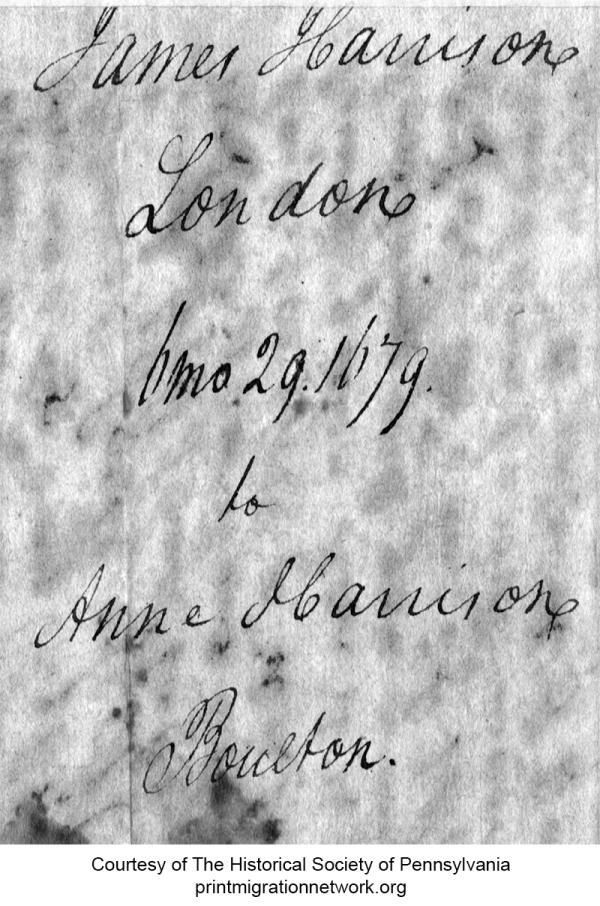 James Harrison
London
6mo 29. 1679.
to
Anne Harrison
Boulton.
Courtesy of The Historical Society of Pennsylvania
printmigrationnetwork.org